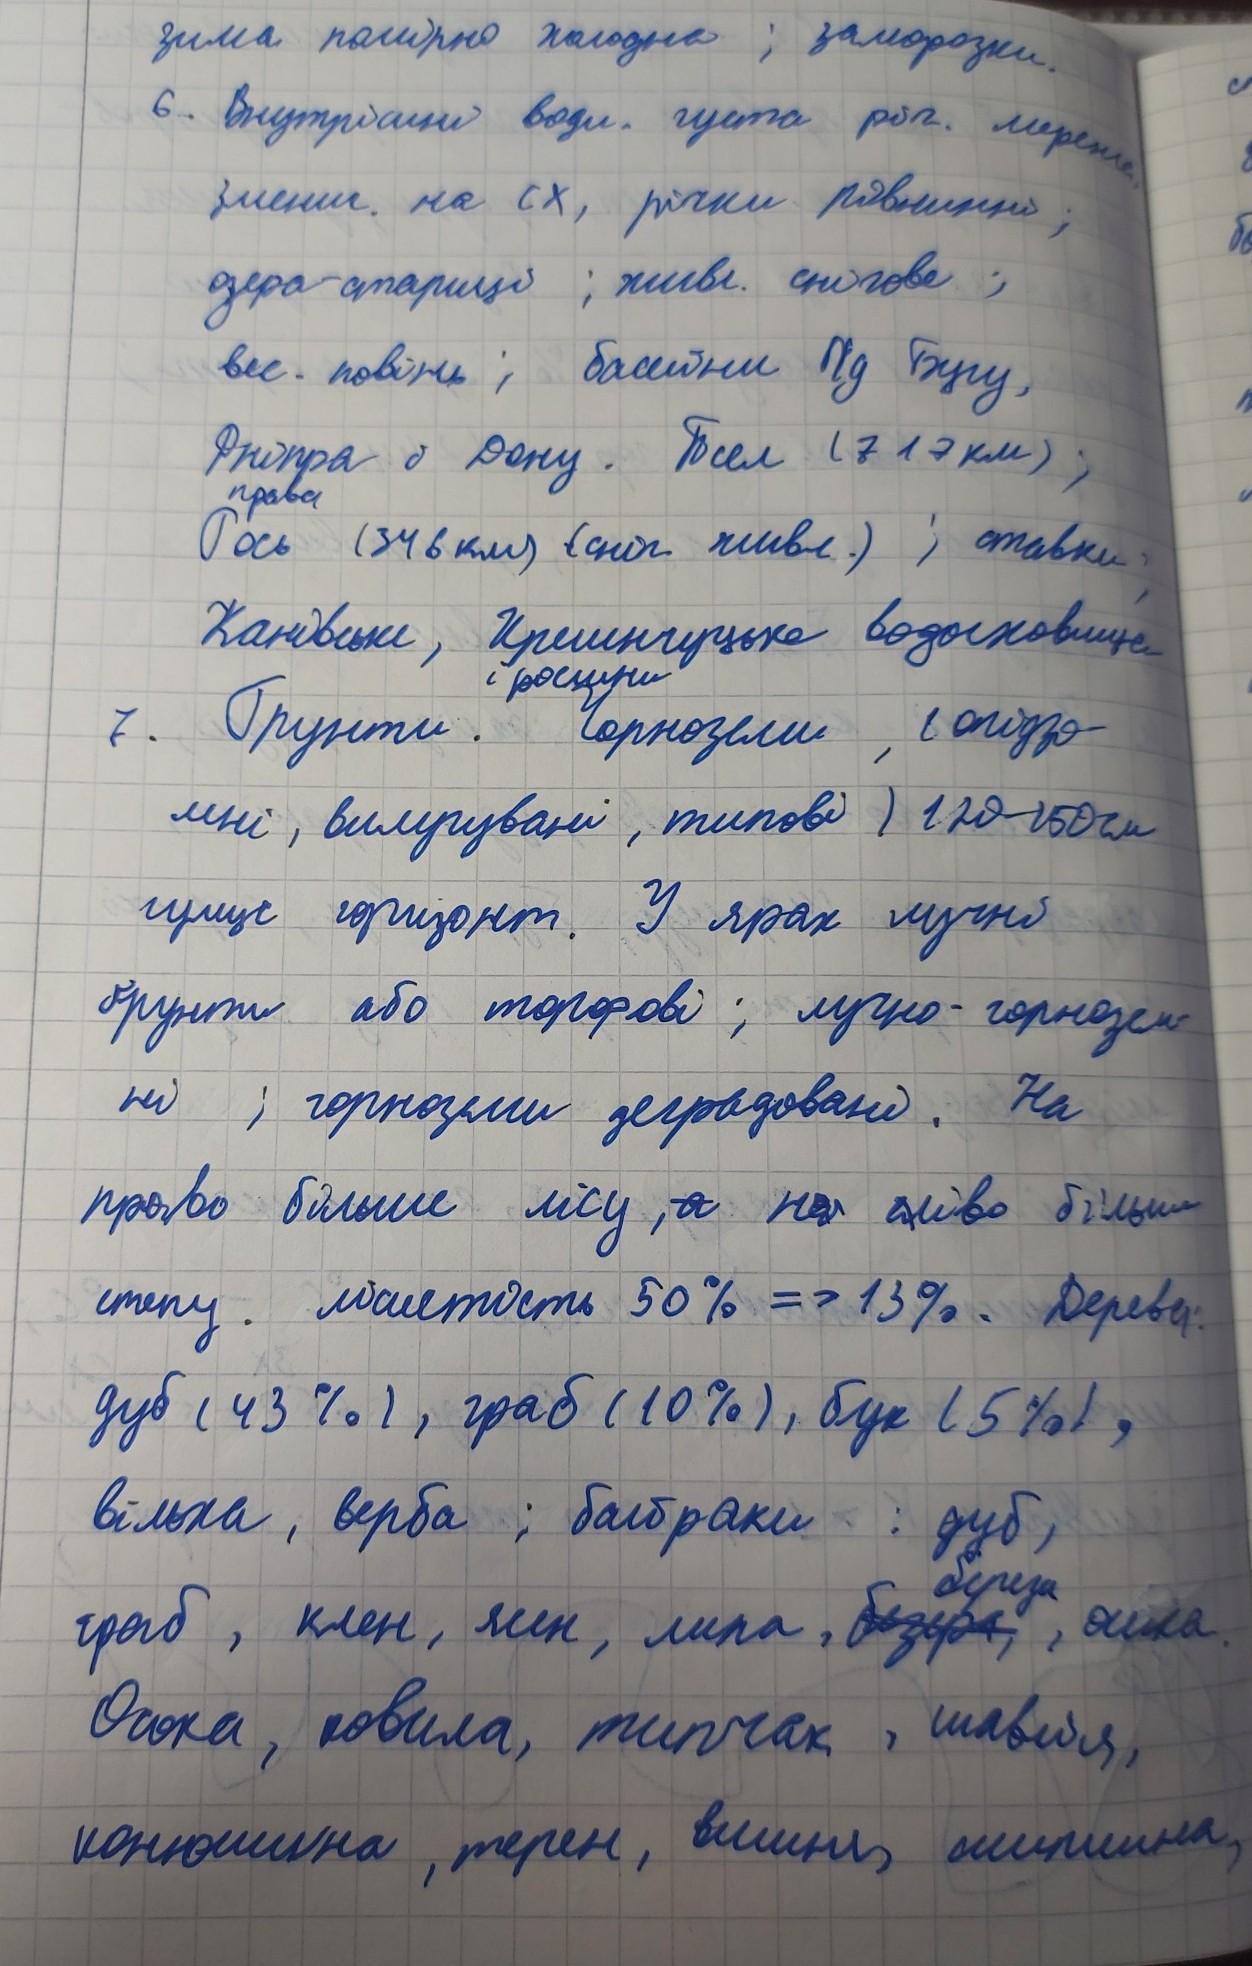 зима помірно холодна ; заморозки.
6. Внутрішні води. густа річ. мережа,
зменш. на СХ, річки рівнинні ;
озера-стариці ; живл. снігове ;
вес. повінь ; басейни Пд Бугу,
Дніпра і Дону. Псел (717 км) ;
права
Рось (346 км) (сніг. живл.) ; ставки ;
Канівське, Кременчуцьке водосховище
і рослини
7. Ґрунти. Чорноземи , (опідзо-
лені, вилугувані, типові) 120-150 см
гумус горизонт. У ярах лучні
ґрунти або торфові ; лучно-чорнозем-
ні ; чорноземи деградовані. На
право більше лісу, а на ліво більше
степу. лісистість 50% => 13%. Дерева:
дуб (43%), граб (10%), бук (5%),
вільха, верба ; байраки : дуб,
береза
граб, клен, ясен, липа, , осика.
Осока, ковила, типчак, шавлія,
конюшина, терен, вишня, шипшина,